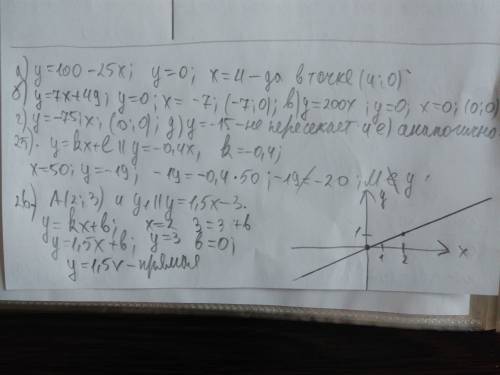 а) y=100-25x; y=0; x=4-да в точке (4;0)
б) y=7x+49; y=0; x= -7; (-7;0); в) y=200x; y=0; x=0; (0;0)
г) y=-75x; (0;0); д) y=-15-не пересекает и е) аналогично
25). y=kx+b || y=-0,4x, k=-0,4;
x=50; y=-19; -19=-0,4·50; -19≠-20; M∉y
26) A(2;3) и y₁||y=1,5x-3.
y=kx+b; x=2 3=3+b
y=1,5x+b; y=3 b=0;
y=1,5x-прямая
y
1
1 2 x